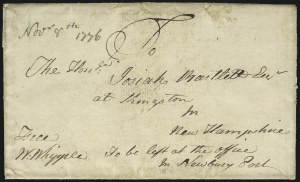 Novr 8th 1776
To
The Honble
Josiah Bartlett Esqr
at Kingston
In
New Hampshire
Free
W. Whipple
To be left at the office
In Newbury Port